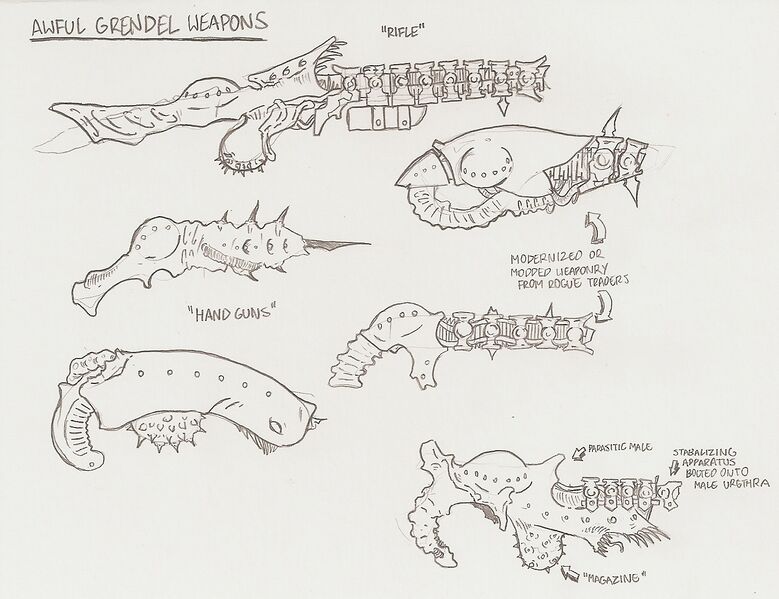 AWFUL GRENDEL WEAPONS
"RIFLE"
MODERNIZED OR
MODDED WEAPONRY
FROM ROGUE TRADERS
"HAND GUNS"
PARASITIC MALE
STABALIZING
APPARATUS
BOLTED ONTO
MALE URETHRA
"MAGAZINE"